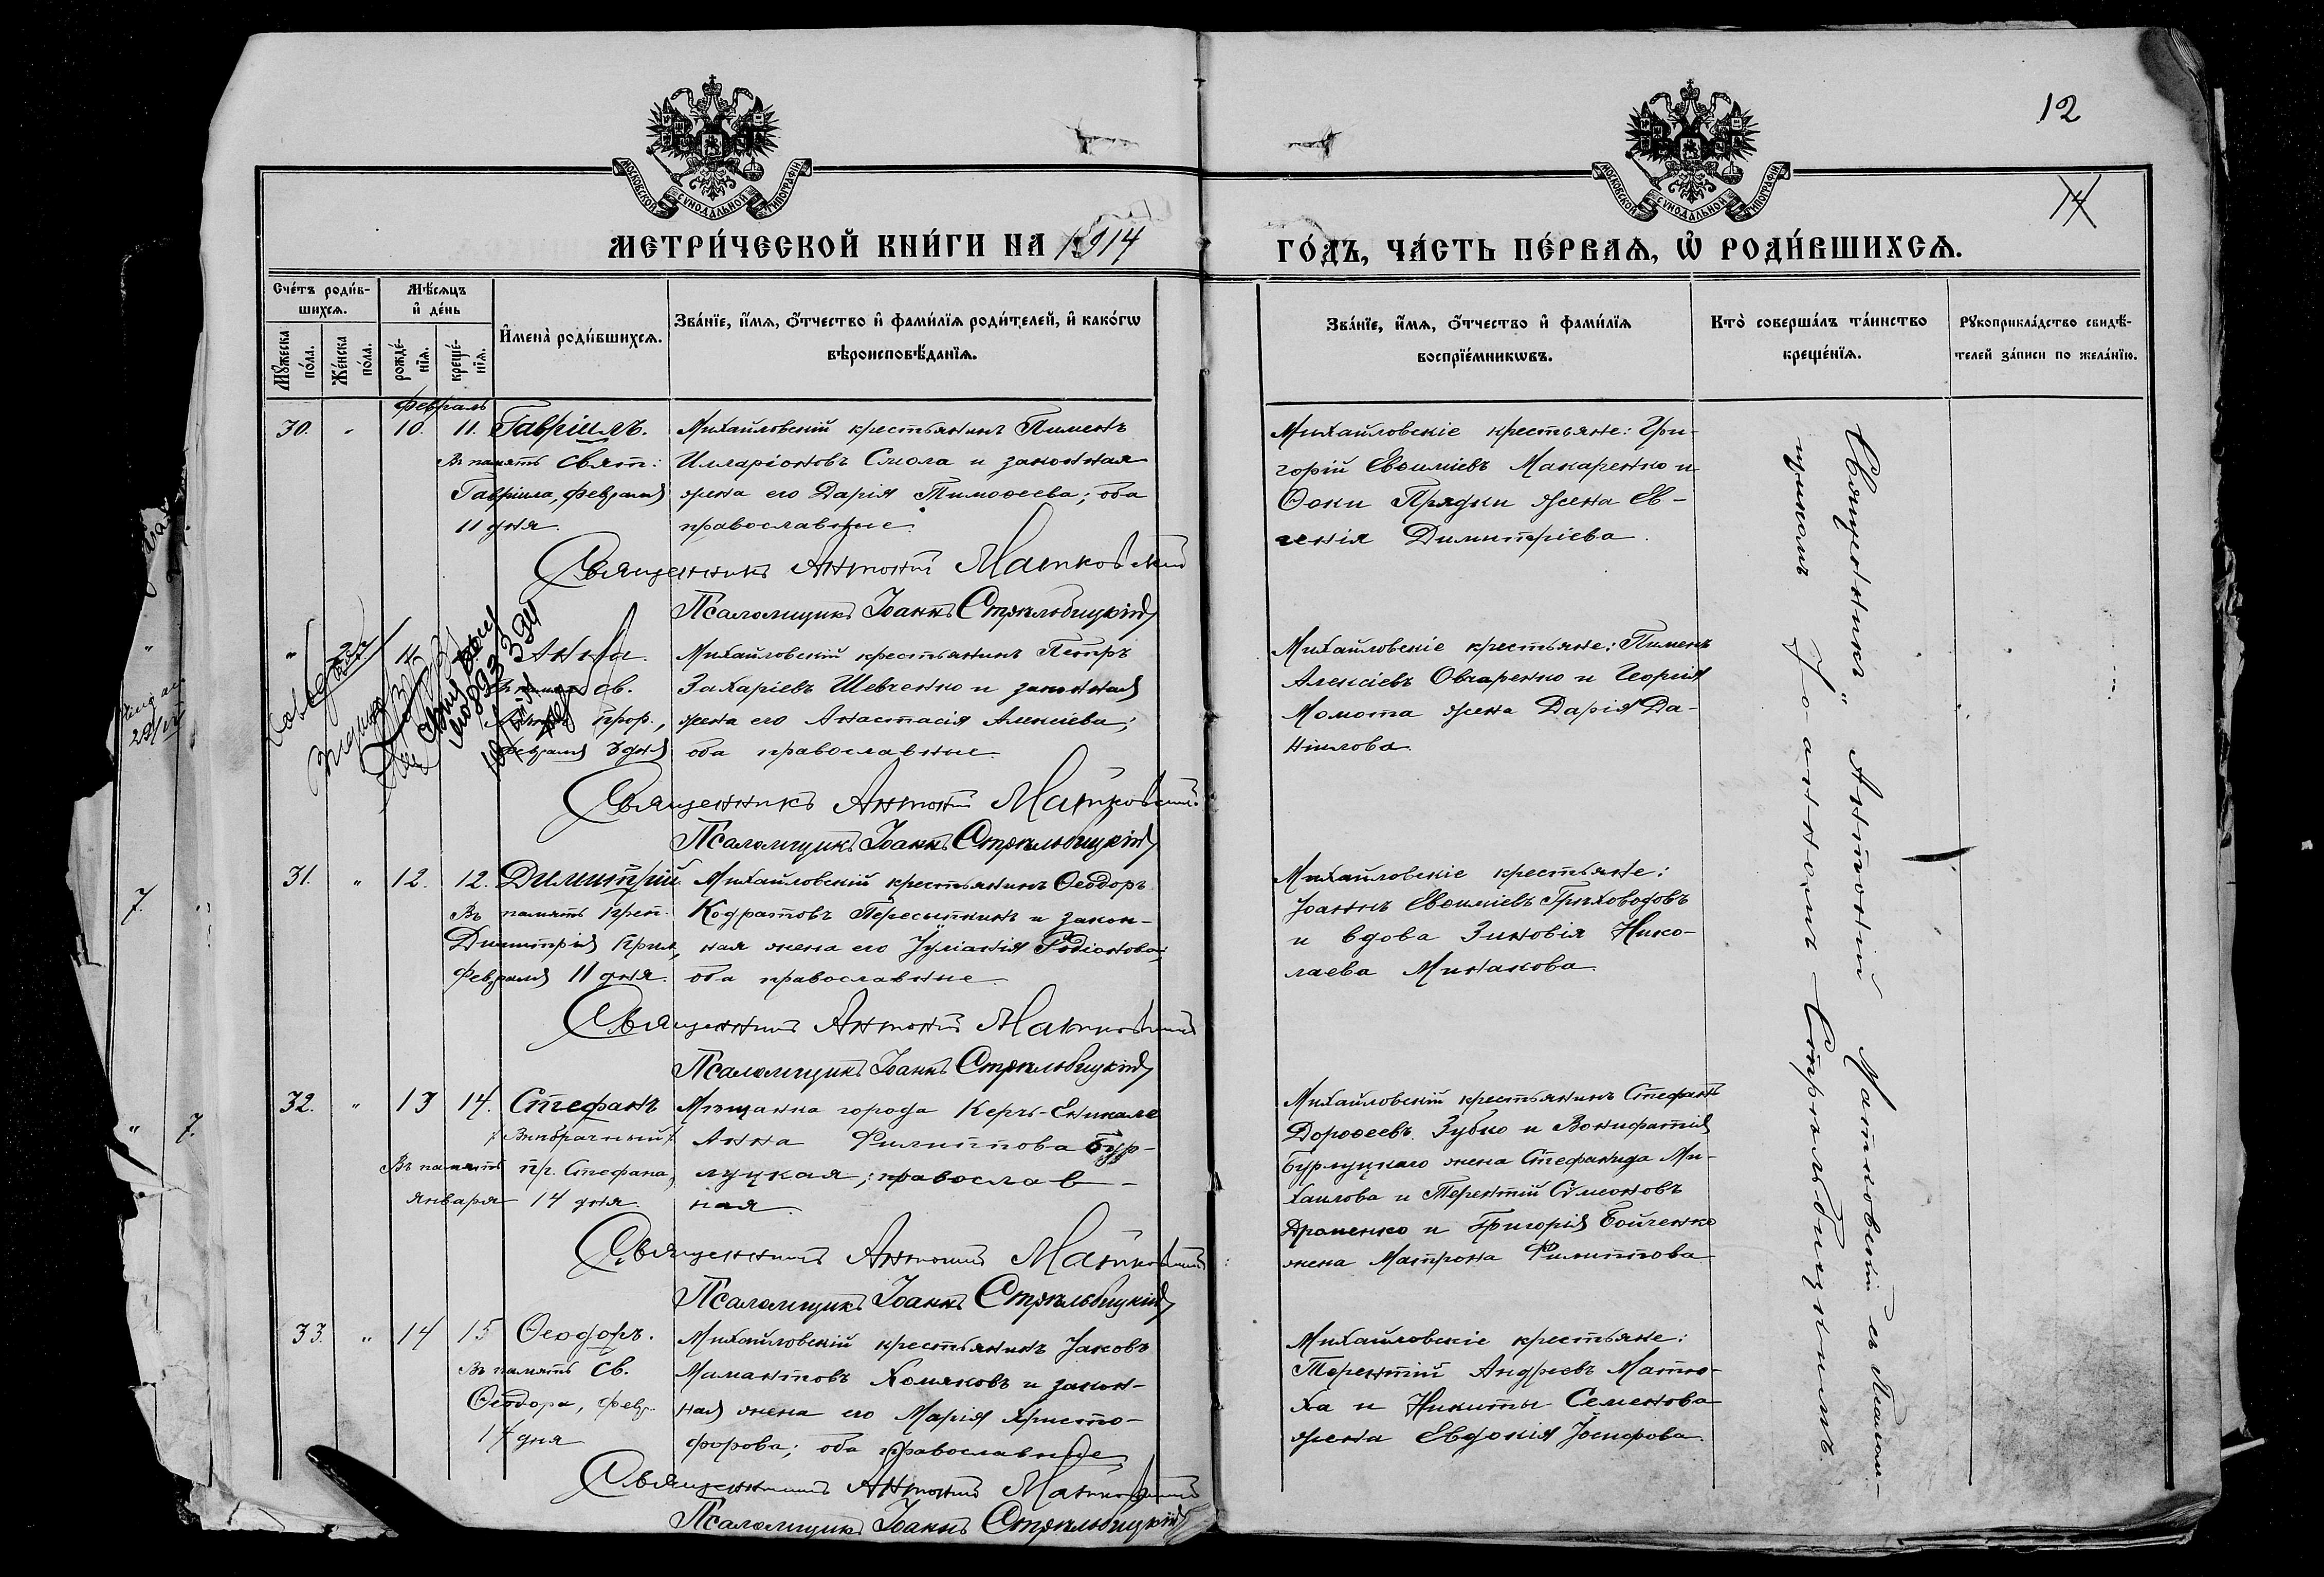 12
14
МОСКОВСКОЙ СѴНОДАЛЬНОЙ ТИПОГРАФІИ
МОСКОВСКОЙ СѴНОДАЛЬНОЙ ТИПОГРАФІИ
МЕТРИ́ЧЕСКОЙ КНИ́ГИ НА 1914
ГО́ДЪ, ЧА́СТЬ ПЕ́РВАѦ, Ѡ҆ РОДИ́ВШИХСѦ.
Сче́тъ роди́в-
шихсѧ.
Мѣ́сѧцъ
и҆ де́нь
Мꙋ́жеска
по́ла.
Же́нска
по́ла.
рожде́-
нїѧ.
креще́-
нїѧ.
И҆мена̀ роди́вшихсѧ.
Зва́нїе, и҆́мѧ, ѻ҆́тчество и҆ фами́лїѧ роди́телей, и҆ како́гѡ
вѣроисповѣ́данїѧ.
Зва́нїе, и҆́мѧ, ѻ҆́тчество и҆ фами́лїѧ
воспрїе́мникѡвъ.
Кто̀ соверша́лъ та́инство
креще́нїѧ.
Рꙋкоприкла́дство свидѣ́-
телей за́писи по жела́нїю.
Февраль
30. " 10. 11. Гавріилъ.
Въ память Свят:
Гавріила, февраля
11 дня.
Михайловскій крестьянинъ Пименъ
Илларіоновъ Смола и законная
жена его Дарія Тимоѳеева; оба
православные.
Священникъ Антоній Матковскій
Псаломщикъ Іоаннъ Стрѣльбицкій
Михайловскіе крестьяне: Гри-
горій Евѳиміевъ Макаренко и
Ѳоки Прядки жена Ев-
генія Димитріева.
" 11 Анна.
св.
прор.,
февраля 3 дня
Михайловскій крестьянинъ Петръ
Захаріевъ Шевченко и законная
жена его Анастасія Алексіева;
оба православные.
Священникъ Антоній Матковскій
Псаломщикъ Іоаннъ Стрѣльбицкій
Михайловскіе крестьяне: Пименъ
Алексіевъ Овчаренко и Георгія
Момота жена Дарія Да-
ніилова.
31. " 12. 12. Димитрій.
Въ память преп.
Димитрія Прил.,
февраля 11 дня.
Михайловскій крестьянинъ Ѳеодоръ
Кодратовъ Пересыпкинъ и закон-
ная жена его Іуліанія Родіонова;
оба православные.
Священникъ Антоній Матковскій
Псаломщикъ Іоаннъ Стрѣльбицкій
Михайловскіе крестьяне:
Іоаннъ Евѳиміевъ Грѣховодовъ
и вдова Зиновія Нико-
лаева Минакова.
32. " 13 14. Стефанъ
/Внѣбрачный/
Въ память пр. Стефана,
января 14 дня.
Мѣщанка города Керчь-Еникале
Анна Филиппова Бур-
луцкая; православ-
ная.
Священникъ Антоній Матковскій
Псаломщикъ Іоаннъ Стрѣльбицкій
Михайловскій крестьянинъ Стефанъ
Дороѳеевъ Зубко и Вонифатія
Бурлуцкаго жена Стефанида Ми-
хаилова и Терентій Сѵмеоновъ
и Григорія Бойченко
жена Матрона Филиппова
33. " 14 15 Ѳеодоръ.
Въ память св.
Ѳеодора, февр.
17 дня
Михайловскій крестьянинъ Іаковъ
Мамантовъ Хомяковъ и закон-
ная жена его Марія Христо-
форова; оба православные
Священникъ Антоній Матковскій
Псаломщикъ Іоаннъ Стрѣльбицкій
Михайловскіе крестьяне:
Терентій Андреевъ Матю-
ха и Никиты Семенова
жена Евдокія Іосифова.
Священникъ Антоній Матковскій съ Псалом-
щикомъ Іо-анномъ Стрѣльбицкимъ
7.
" 7.